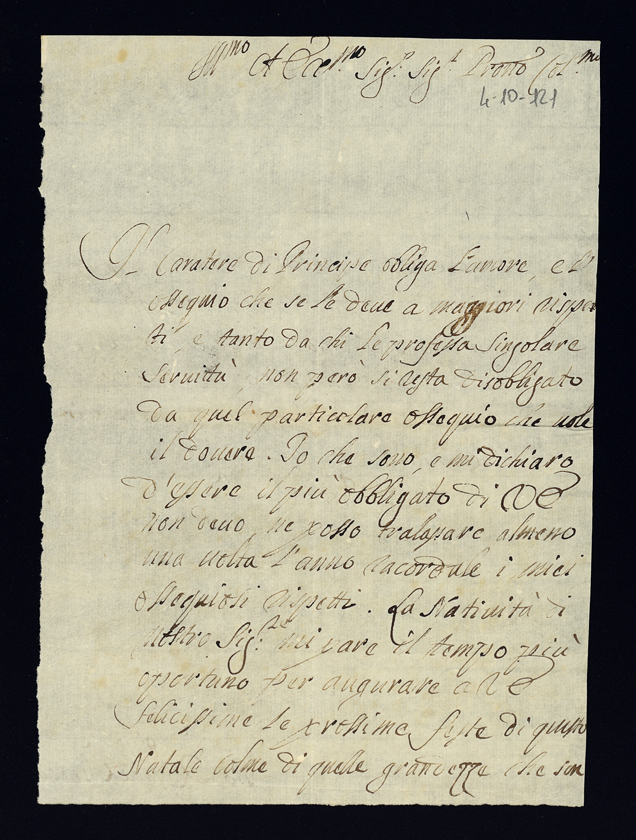 Ill.mo et Ecc.mo Sig.r Sig.r Prone Col.mo
4-10-121
Il Caratere di Principe obliga l'amore, e l'
ossequio che se le deve a maggiori rispe
ti e tanto da chi le professa singolare
Servittù, non però si resta disobligato
da quel particolare ossequio che vole
il dovere. Io che sono, e mi dichiaro
d'essere il più obbligato di VE
non devo, ne posso tralassare almeno
una volta l'anno racordale i miei
ossequiosi rispetti. La Natività di
nostro Sig.re mi pare il tempo più
oportuno per augurare a VE
felicissime le prossime feste di questo
Natale colme di quelle grandezze che son